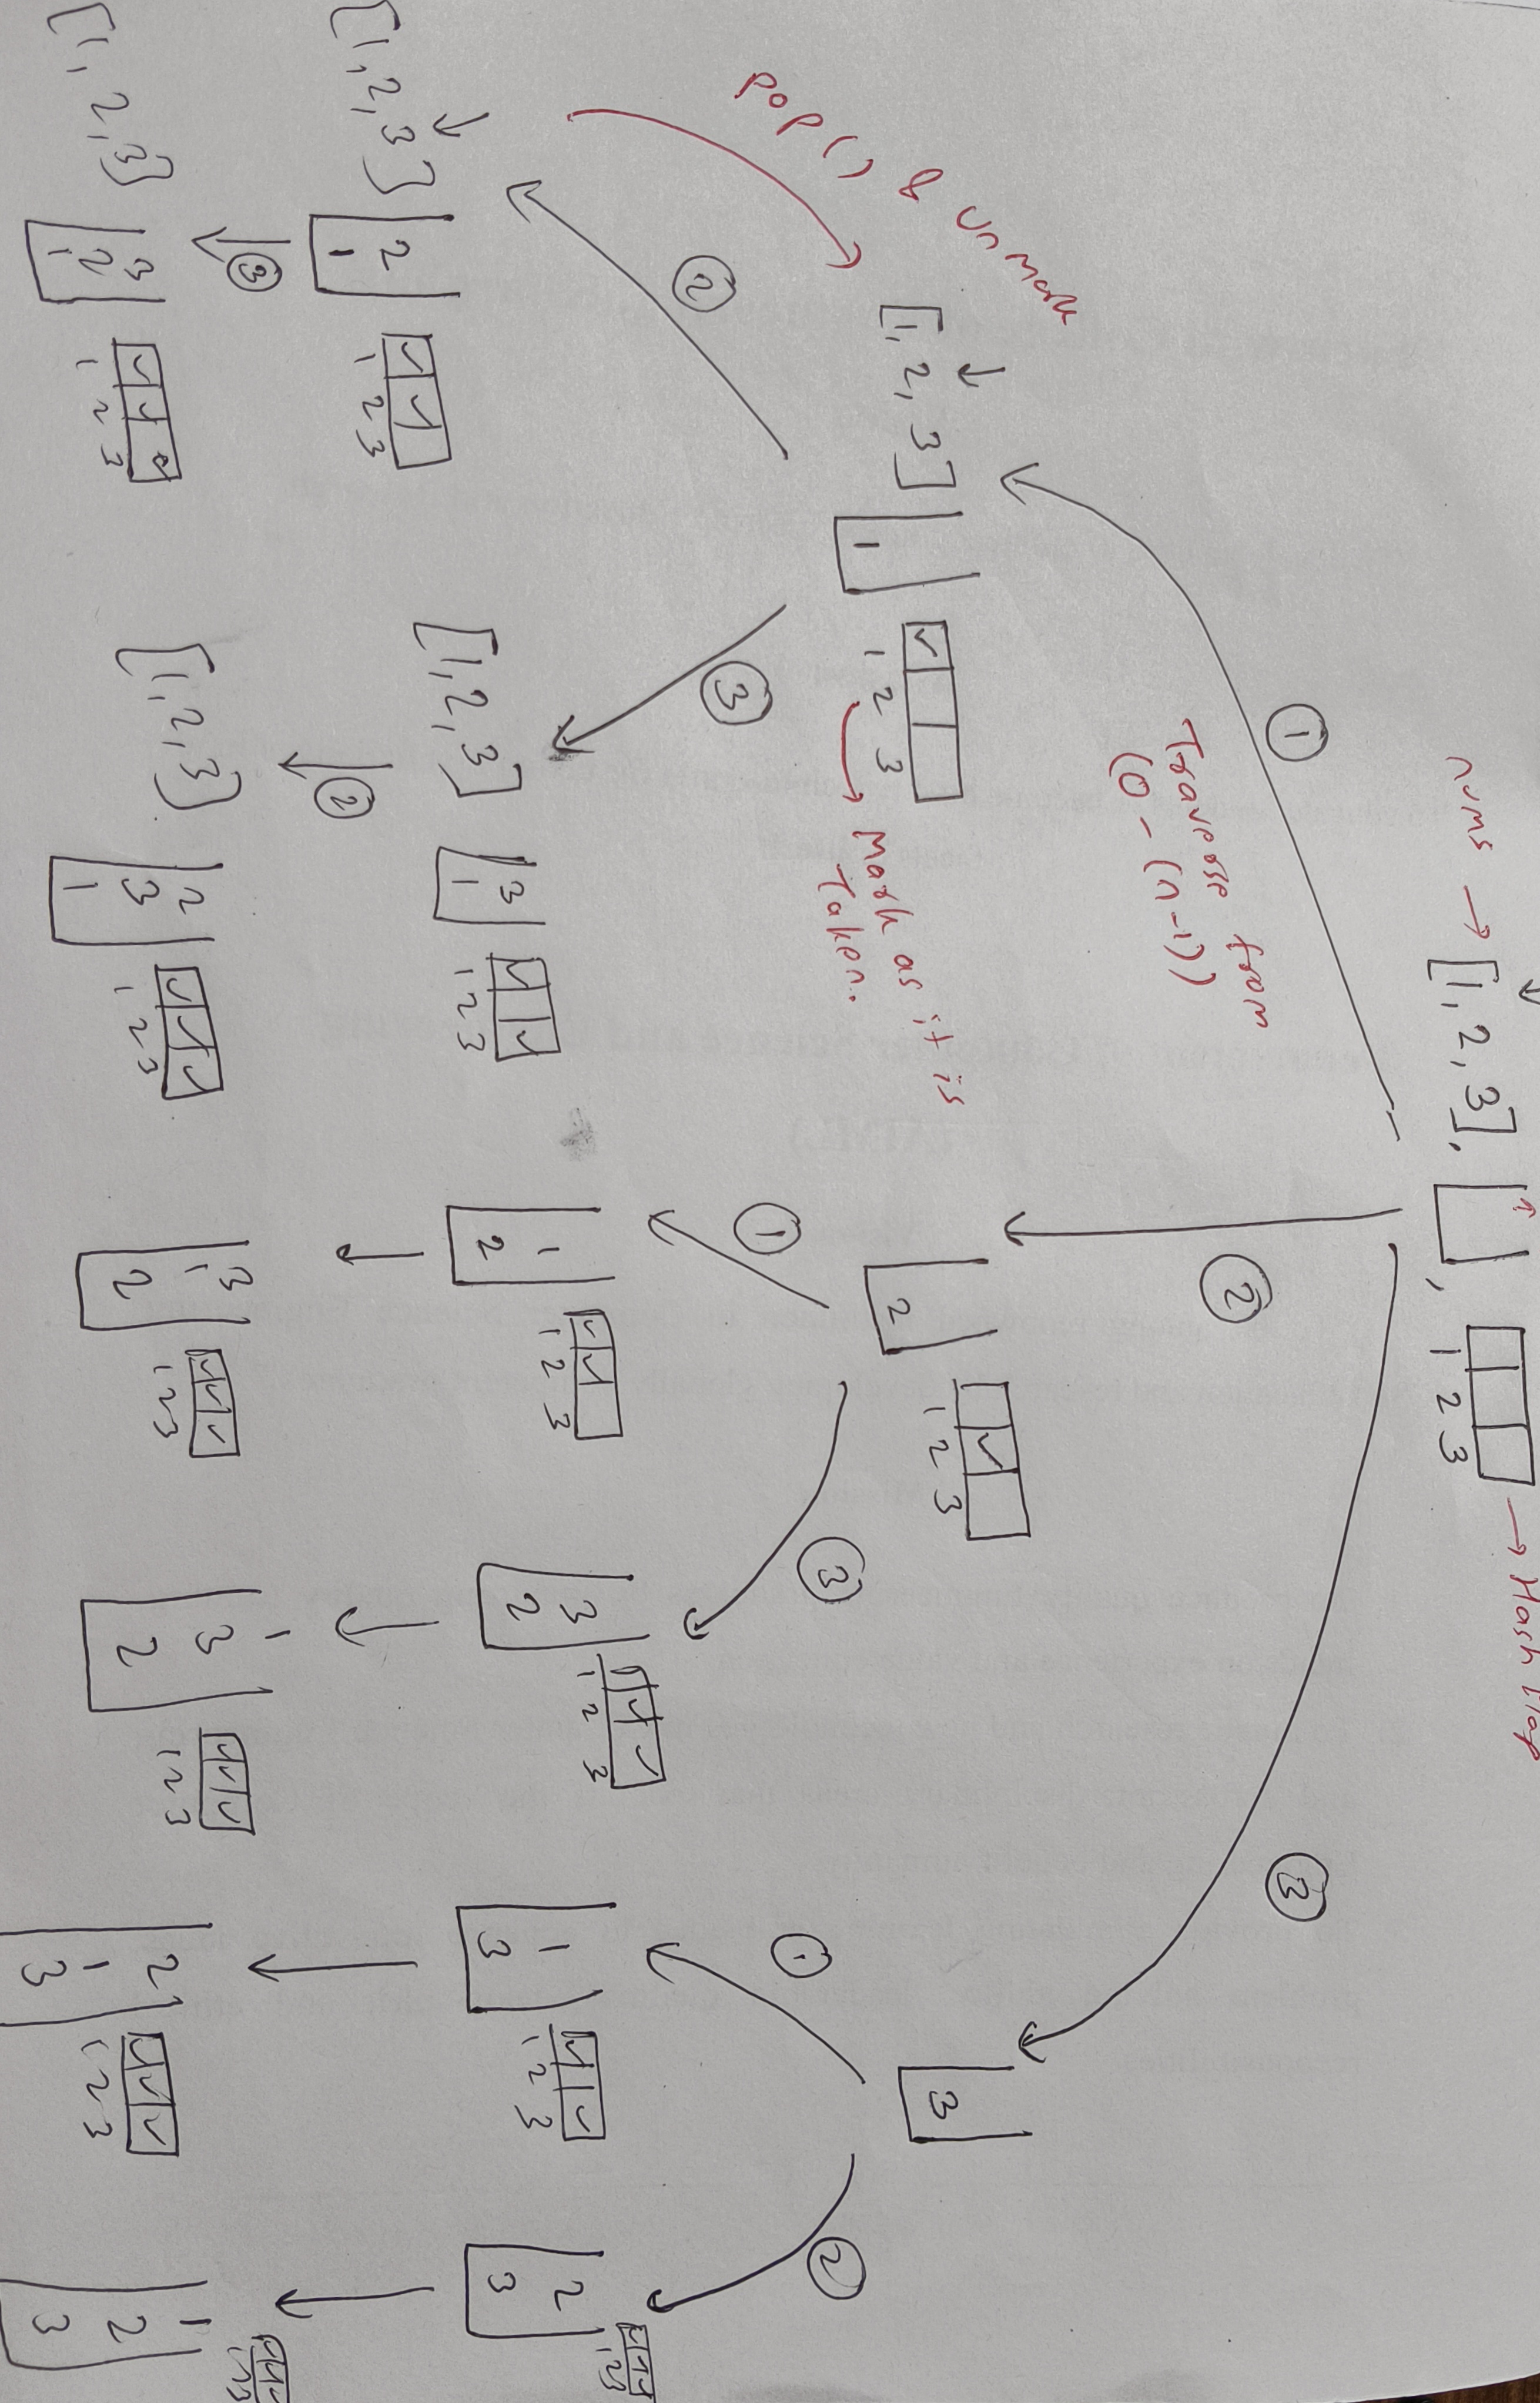 nums → [1, 2, 3], , → Hash Map
1 2 3
①
②
③
Traverse from
(0 - (n-1))
pop() & unmark
[1, 2, 3] 1
1 2 3
Mark as it is
Taken.
2
1 2 3
3
②
③
①
③
①
②
[1,2,3] 2 1
1 2 3
[1,2,3] 3 1
1 2 3
1 2
1 2 3
3 2
1 2 3
1 3
1 2 3
2 3
1 2 3
③
②
[1, 2, 3] 3 2 1
1 2 3
[1,2,3] 2 3 1
1 2 3
3 1 2
1 2 3
1 3 2
1 2 3
2 1 3
1 2 3
1 2 3